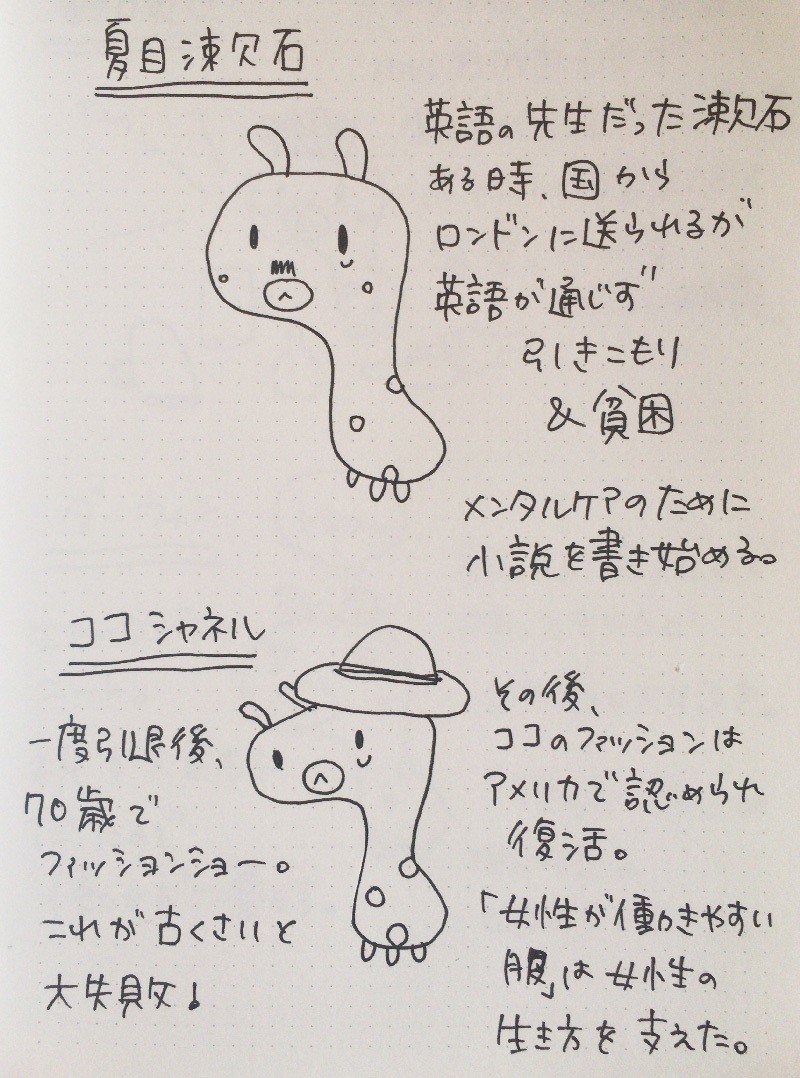 夏目漱石
英語の先生だった漱石
ある時、国から
ロンドンに送られるが
英語が通じず
引きこもり
&貧困
メンタルケアのために
小説を書き始める。
ココ シャネル
一度引退後、
70歳で
ファッションショー。
これが古くさいと
大失敗!
その後、
ココのファッションは
アメリカで認められ
復活。
「女性が働きやすい
腹」は女性の
生き方を支えた。